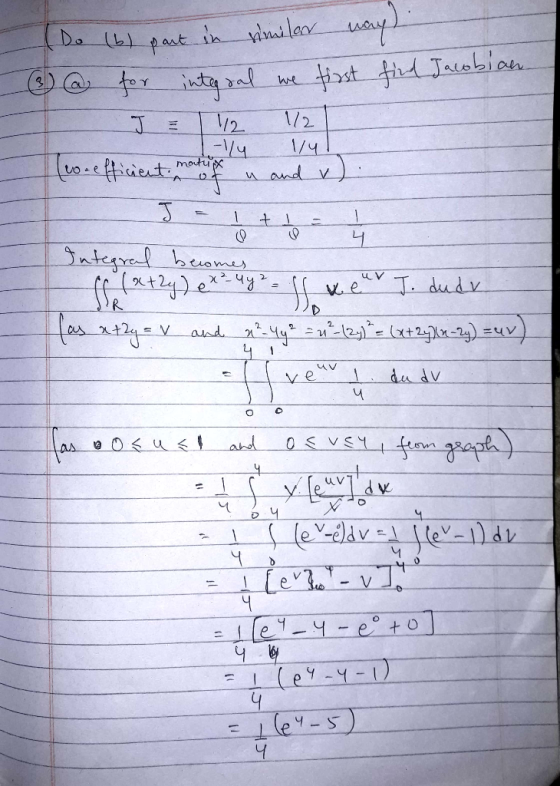 (Do (b) part in similar way).
③ ⓐ, for integral we first find Jacobian
J = | 1/2 1/2 |
| -1/4 1/4 |
(co-efficient matrix of u and v).
J = 1/8 + 1/8 = 1/4
Integral becomes
∬_R (x+2y) e^{x²-4y²} = ∬_D v e^{uv} J. du dv
(as x+2y = v and x²-4y² = x²-(2y)² = (x+2y)(x-2y) = uv)
= ∫_0^4 ∫_0^1 v e^{uv} 1/4. du dv
(as 0 ≤ u ≤ 1 and 0 ≤ v ≤ 4, from graph)
= 1/4 ∫_0^4 v. [e^{uv}/v]_0^1 dv
= 1/4 ∫_0^4 (e^v - e^0) dv = 1/4 ∫_0^4 (e^v - 1) dv
= 1/4 [e^v]_0^4 - v]_0^4
= 1/4 [e^4 - 4 - e^0 + 0]
= 1/4 (e^4 - 4 - 1)
= 1/4 (e^4 - 5)